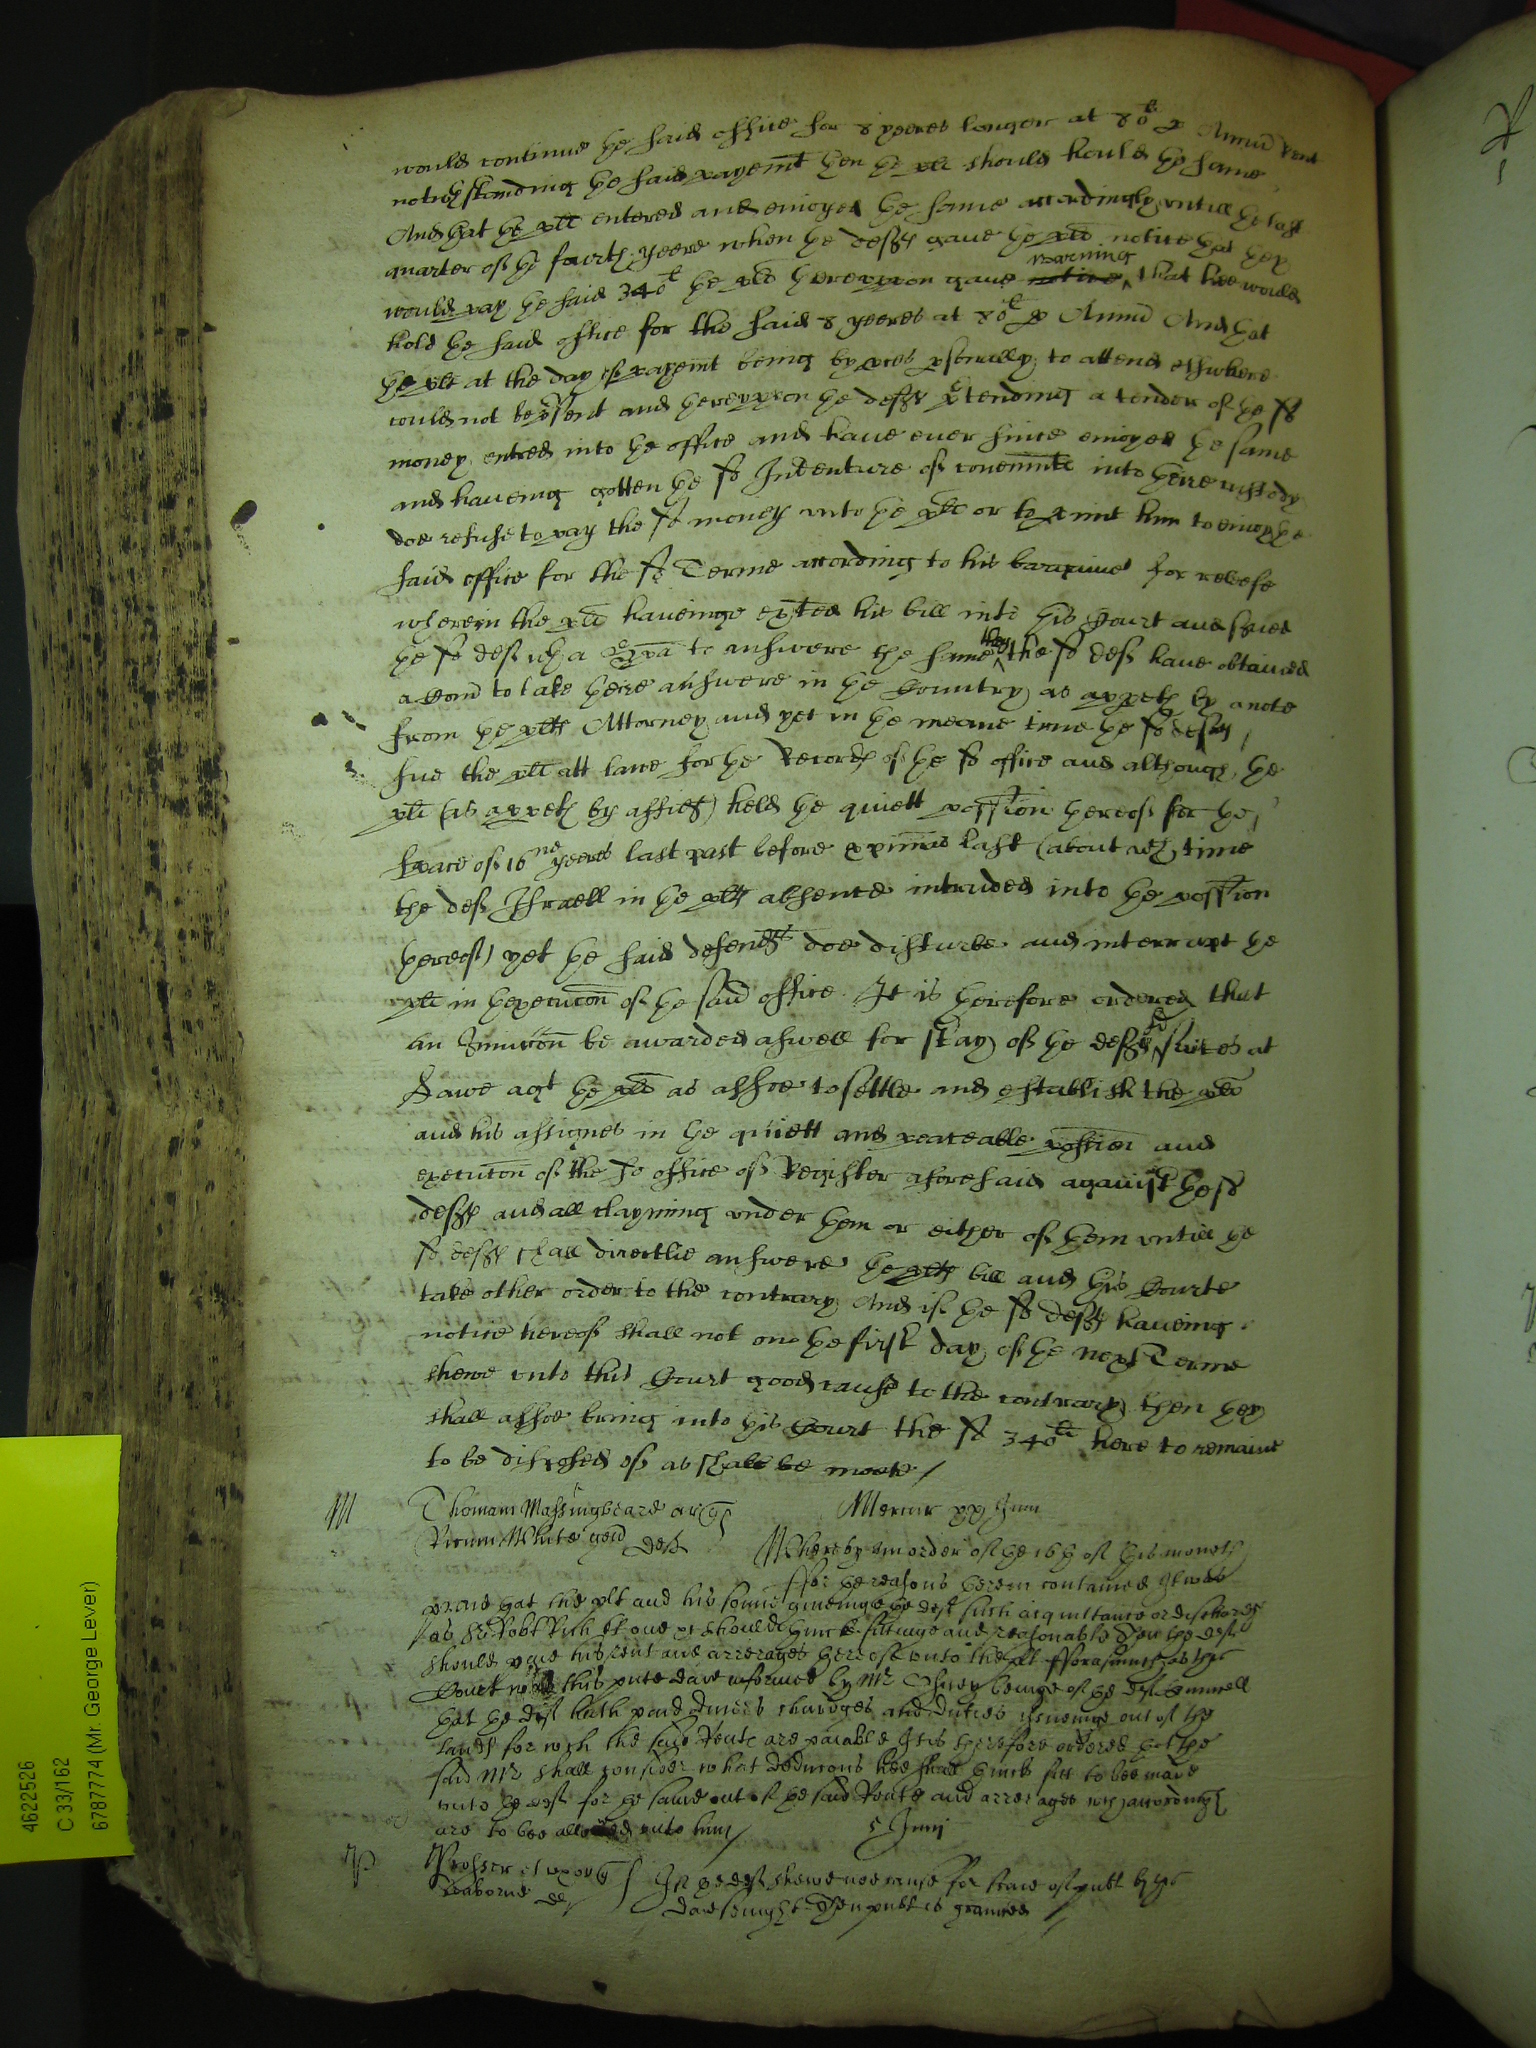 would continue the said office for 8 yeeres longer at 80li p Annu Rent
notwthstanding the said payemt then the plt should hould the same
And that the plt entered and enioyed the same accordingly vntill the last
quarter of the fourth yeere when the defts gaue the plt notice that they
would pay the said 340li the plt therevppon gaue notice warning that hee would
hold the said office for the said 8 yeeres at 80li p Annu And that
the plt at the day of payemt being by pces psonally to attend elswhere
could not be psent and therevppon the defts ptending a tender of the sd
money entred into the office and haue euer since enioyed the same
and haueing gotten the sd Indenture of couennts into their custody
doe refuse to pay the sd money vnto the plt or to pmit him to enioy the
said office for the sd Terme according to his bargaine for releife
wherein the plt haueinge exhited his bill into this Court and serued
the sd deft wth a spa to answere the same they the sd deft haue obtained
a Comn to take their answere in the Country as appeth by a note
from the plts Attorney and yet in the meane time the sd defts
sue the plt att lawe for the Records of the sd office and although the
plt (as appeth by affidt) held the quiett possion thereof for the
space of 16ne yeeres last past before xpimas last (about wch time
the deft Israell in the plts absence intruded into the possion
thereof) yet the said defendts doe disturbe and interrupt the
plt in thexecucon of the said office. It is therefore ordered that
an Iniuncon be awarded aswell for stay of the defts sd suites at
Lawe agt the plt as alsoe to settle and establish the plt
and his assignes in the quiett and peaceable possion and
execucon of the sd office of Register aforesaid against the sd
defts and all clayming vnder them or either of them vntill the
sd defts shall directlie answere the plts bill and this Courte
take other order to the contrary And if the sd defts haueing
notice thereof shall not on the first day of the next Terme
shewe vnto this Court good cause to the contrary then they
shall alsoe bring into this Court the sd 340li there to remaine
to be disposed of as shalbe meete /
M Thomam Massingbeard ar q
Mercur xx Juni
White gen deft
Whereby an order of the 16th of this moneth
ffor the reasons therein contained It was
that the plt and his sonne giueinge the deft such acquittance or discharge
as Sr Robt Rich kt one &c should thincke fittinge and reasonable Then the deft
should paie his rent and arrerages thereof vnto the plt fforasmuch as this
Court was this pnte daie informed by Mr beinge of the defts Councell
that the deft hath paid diuers charges and duties issueinge out of the
lands for wch the said Rents are paiable It is therefore ordered that the
said Mr shall consider what deduccons hee shall thincke fitt to bee made
vnto the deft for the same out of the said Rents and arrerages wch accordingly
are to bee allowed vnto him /
5 Junij
P Prosser et vxor q
deft
If the deft shewe noe cause for staie of publ by this
daie sennight Then publ is graunted /
4622526
C 33/162
6787774 (Mr. George Lever)